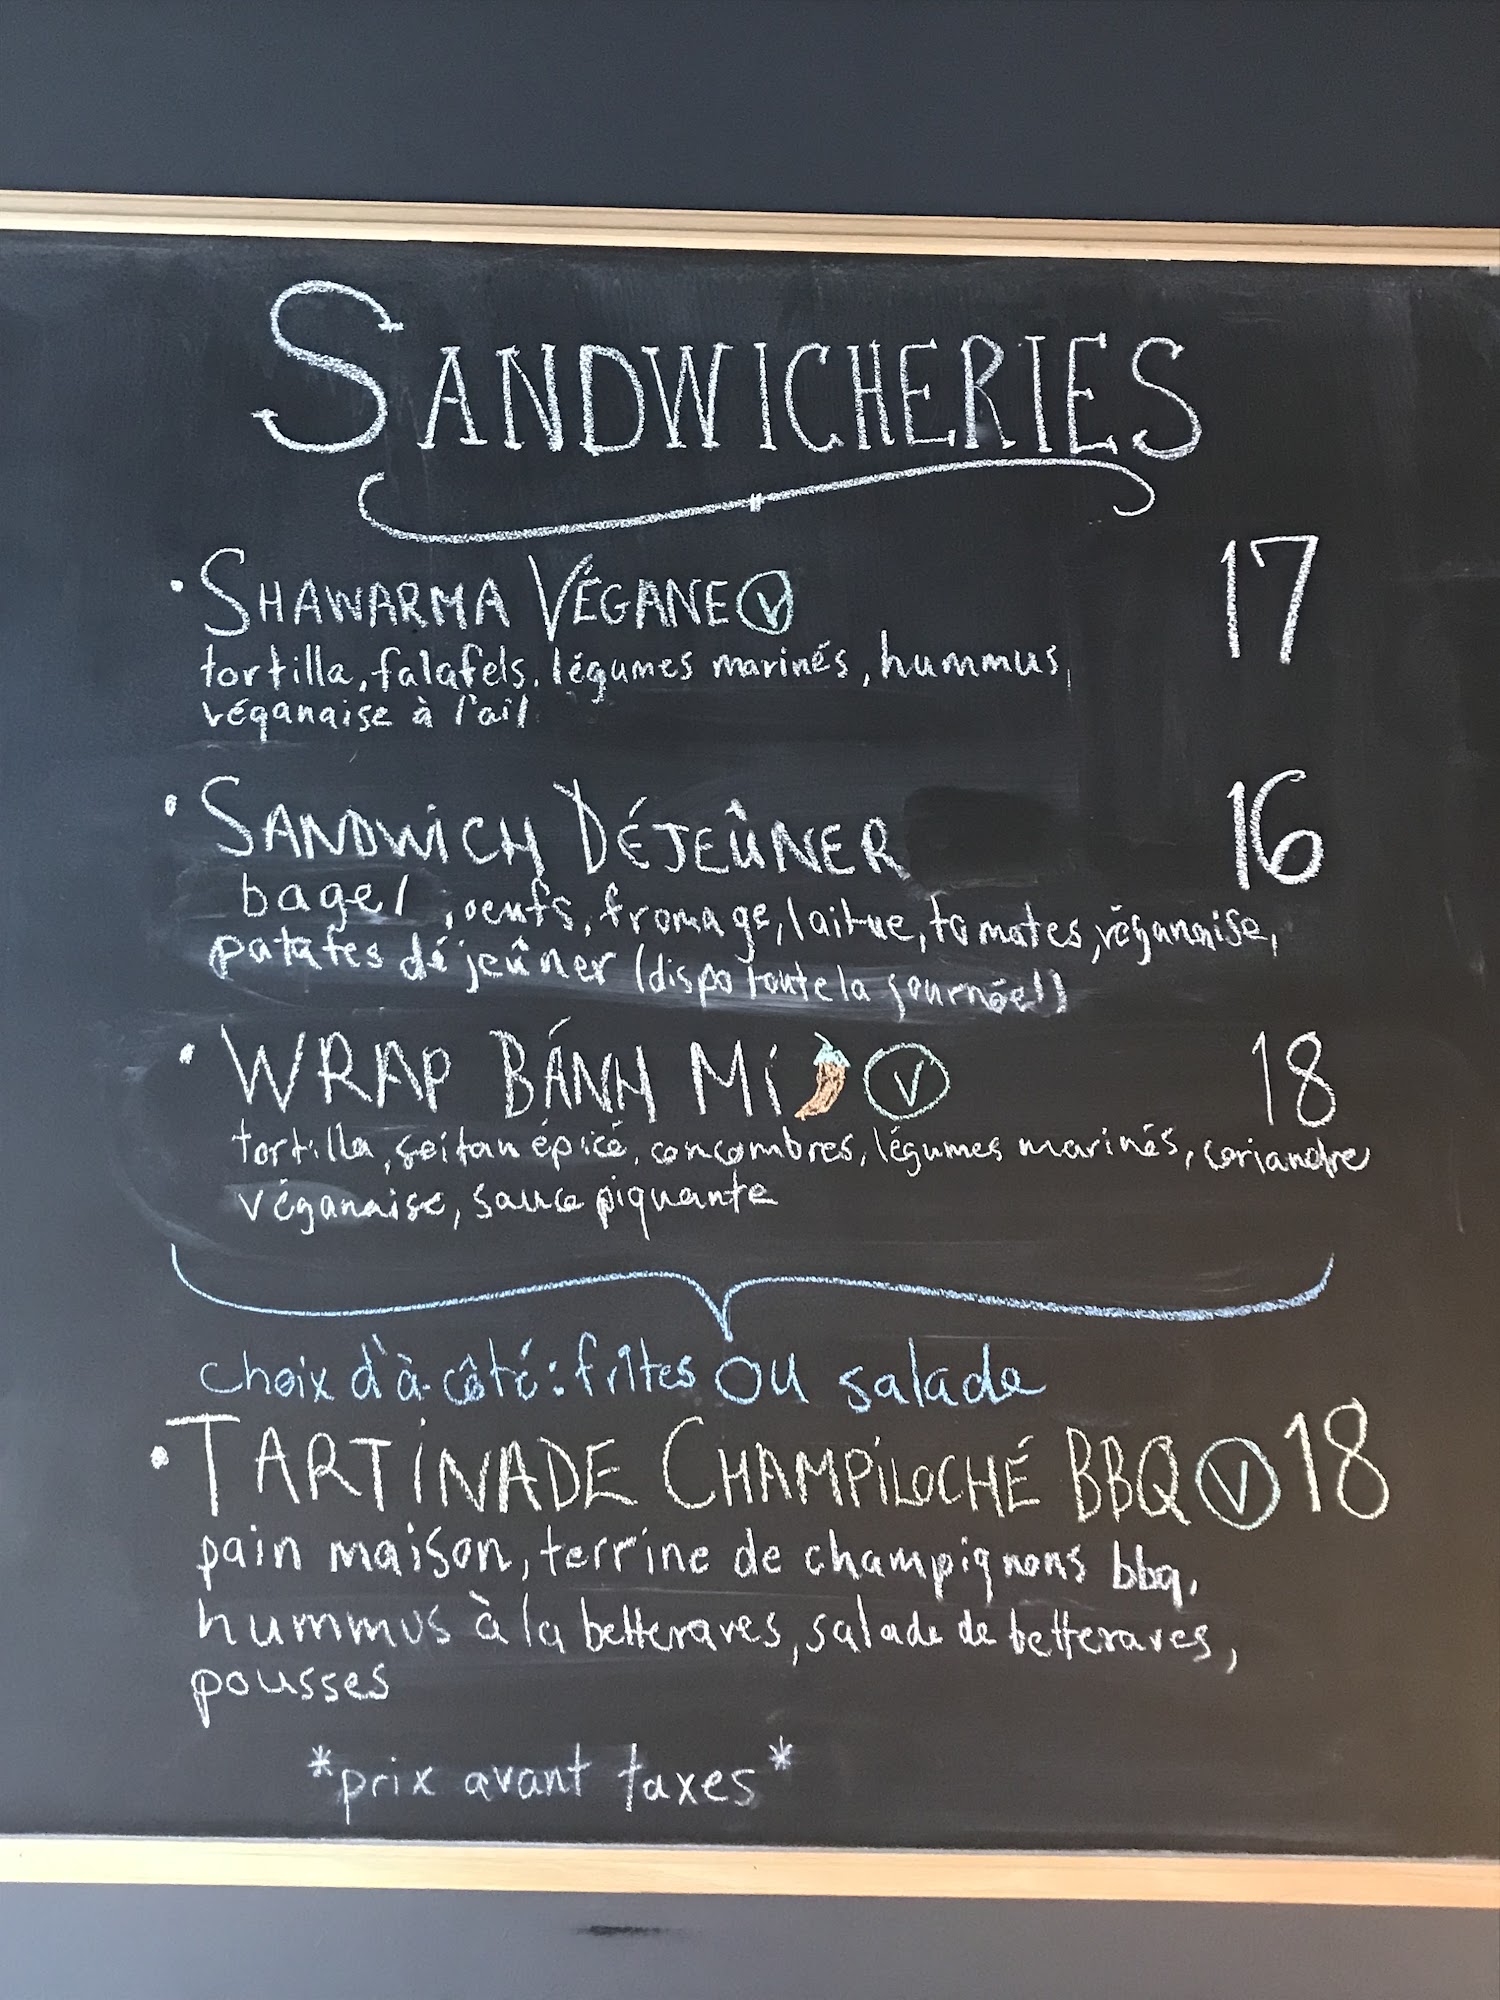 SANDWICHERIES
• SHAWARMA VÉGANE Ⓥ 17
tortilla, falafels, légumes marinés, hummus,
véganaise à l'ail
• SANDWICH DÉJEÛNER 16
bagel, oeufs, fromage, laitue, tomates, véganaise,
patates déjeûner (dispo toute la journée!)
• WRAP BÁNH Mi 🌶 Ⓥ 18
tortilla, seitan épicé, concombres, légumes marinés, coriandre
véganaise, sauce piquante
choix d'à-côté: frîtes OU salade
• TARTINADE CHAMPILOCHÉ BBQ Ⓥ 18
pain maison, terrine de champignons bbq,
hummus à la betteraves, salade de betteraves,
pousses
*prix avant taxes*